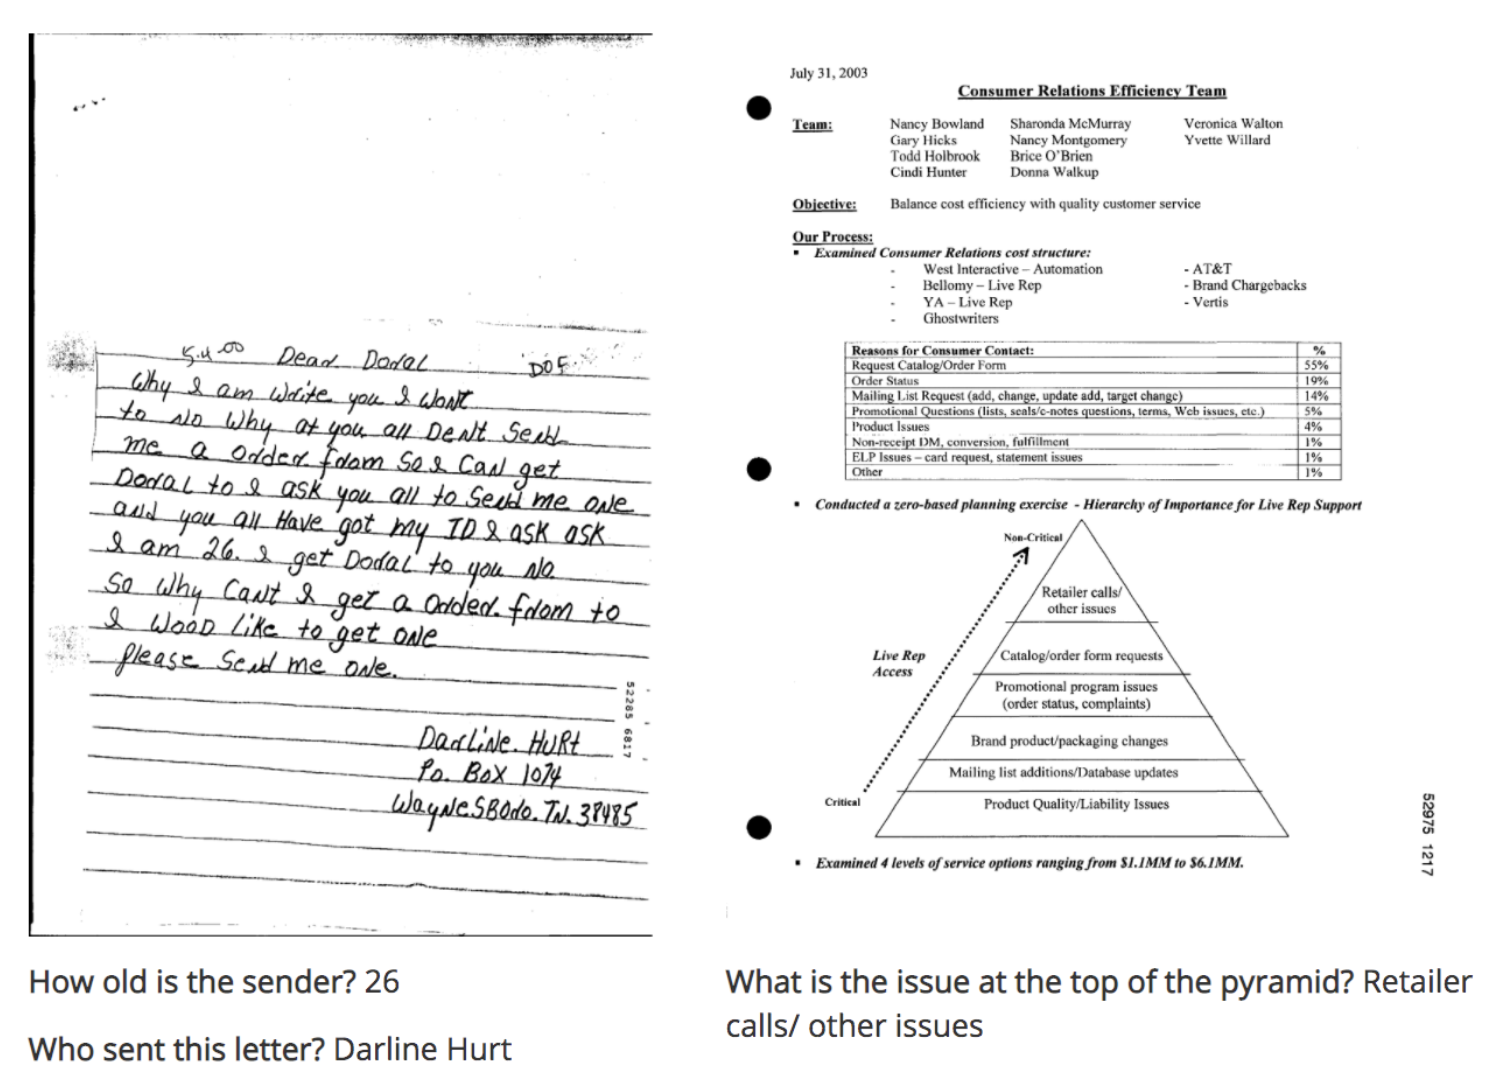 5.4.00 Dear Doral D05
Why I am write you I wont
to No Why at you all Den't Send
me a odder from So I Can get
Doral to I ask you all to Send me one
and you all Have got my ID I ask ask
I am 26. I get Doral to you No
So Why Can't I get a odder. from to
I Wood Like to get one
please Send me one.
52285 6817
Darline. HURt
Po. Box 1074
WayNeSBoro. TN. 38485
How old is the sender? 26
Who sent this letter? Darline Hurt
July 31, 2003
Consumer Relations Efficiency Team
Team: Nancy Bowland Sharonda McMurray Veronica Walton
Gary Hicks Nancy Montgomery Yvette Willard
Todd Holbrook Brice O'Brien
Cindi Hunter Donna Walkup
Objective: Balance cost efficiency with quality customer service
Our Process:
▪ Examined Consumer Relations cost structure:
- West Interactive – Automation - AT&T
- Bellomy – Live Rep - Brand Chargebacks
- YA – Live Rep - Vertis
- Ghostwriters
Reasons for Consumer Contact: %
Request Catalog/Order Form 55%
Order Status 19%
Mailing List Request (add, change, update add, target change) 14%
Promotional Questions (lists, seals/c-notes questions, terms, Web issues, etc.) 5%
Product Issues 4%
Non-receipt DM, conversion, fulfillment 1%
ELP Issues – card request, statement issues 1%
Other 1%
▪ Conducted a zero-based planning exercise - Hierarchy of Importance for Live Rep Support
Non-Critical
Retailer calls/
other issues
Live Rep
Access
Catalog/order form requests
Promotional program issues
(order status, complaints)
Brand product/packaging changes
Mailing list additions/Database updates
Critical
Product Quality/Liability Issues
52975 1217
▪ Examined 4 levels of service options ranging from $1.1MM to $6.1MM.
What is the issue at the top of the pyramid? Retailer
calls/ other issues